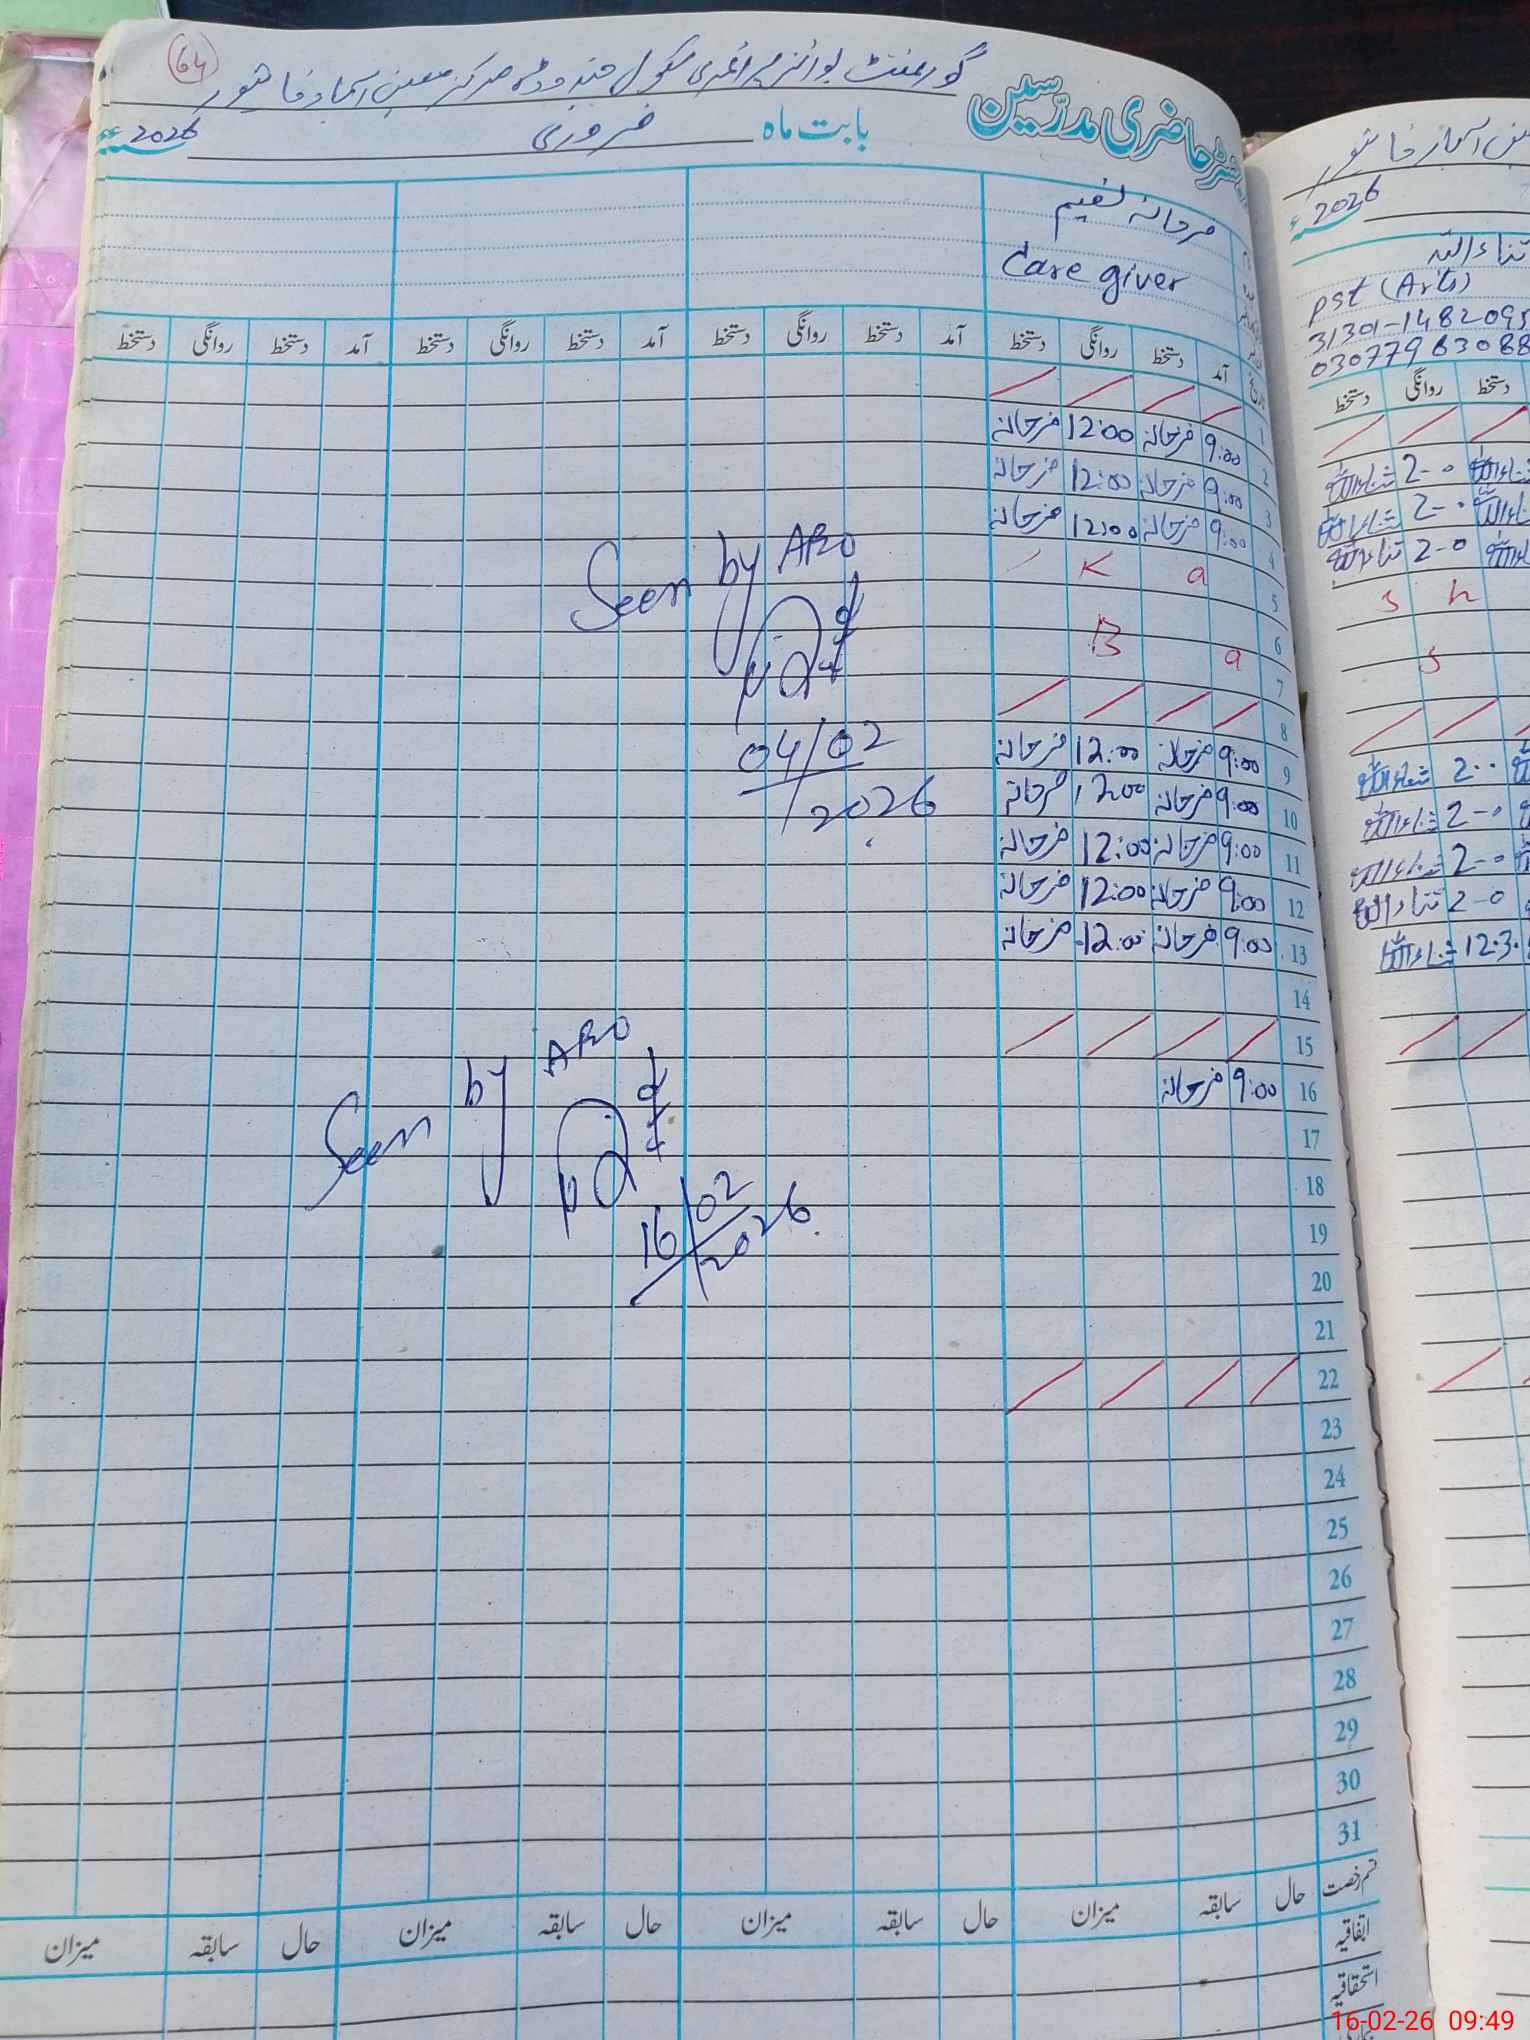 64
گورنمنٹ بوائز پرائمری سکول
رجسٹر حاضری مدرّسین
بابت ماہ فروری 2026ء
فرحانہ نسیم
Care giver
آمد دستخط روانگی دستخط آمد دستخط روانگی دستخط آمد دستخط روانگی دستخط آمد دستخط روانگی دستخط
1
2 9:00 فرحانہ 12:00 فرحانہ
3 9:00 فرحانہ 12:00 فرحانہ
4 9:00 فرحانہ 12:00 فرحانہ
5 a K
6
7 a B
8
9 9:00 فرحانہ 12:00 فرحانہ
10 9:00 فرحانہ 12:00 فرحانہ
11 9:00 فرحانہ 12:00 فرحانہ
12 9:00 فرحانہ 12:00 فرحانہ
13 9:00 فرحانہ 12:00 فرحانہ
14
15
16 9:00 فرحانہ
17
18
19
20
21
22
23
24
25
26
27
28
29
30
31
Seen by AEO
04/02
2026
Seen by AEO
16/02
2026
قسم رخصت حال سابقہ میزان حال سابقہ میزان حال سابقہ میزان حال سابقہ میزان
اتفاقیہ
استحقاقیہ
2026ء
ثناء اللہ
PST (Arts)
31301-1482095
03077983088
دستخط روانگی دستخط
ثناءاللہ 2-0
ثناءاللہ 2-0
ثناءاللہ 2-0
s h
s
ثناءاللہ 2-0
ثناءاللہ 2-0
ثناءاللہ 2-0
ثناءاللہ 2-0
ثناءاللہ 12.3
16-02-26 09:49